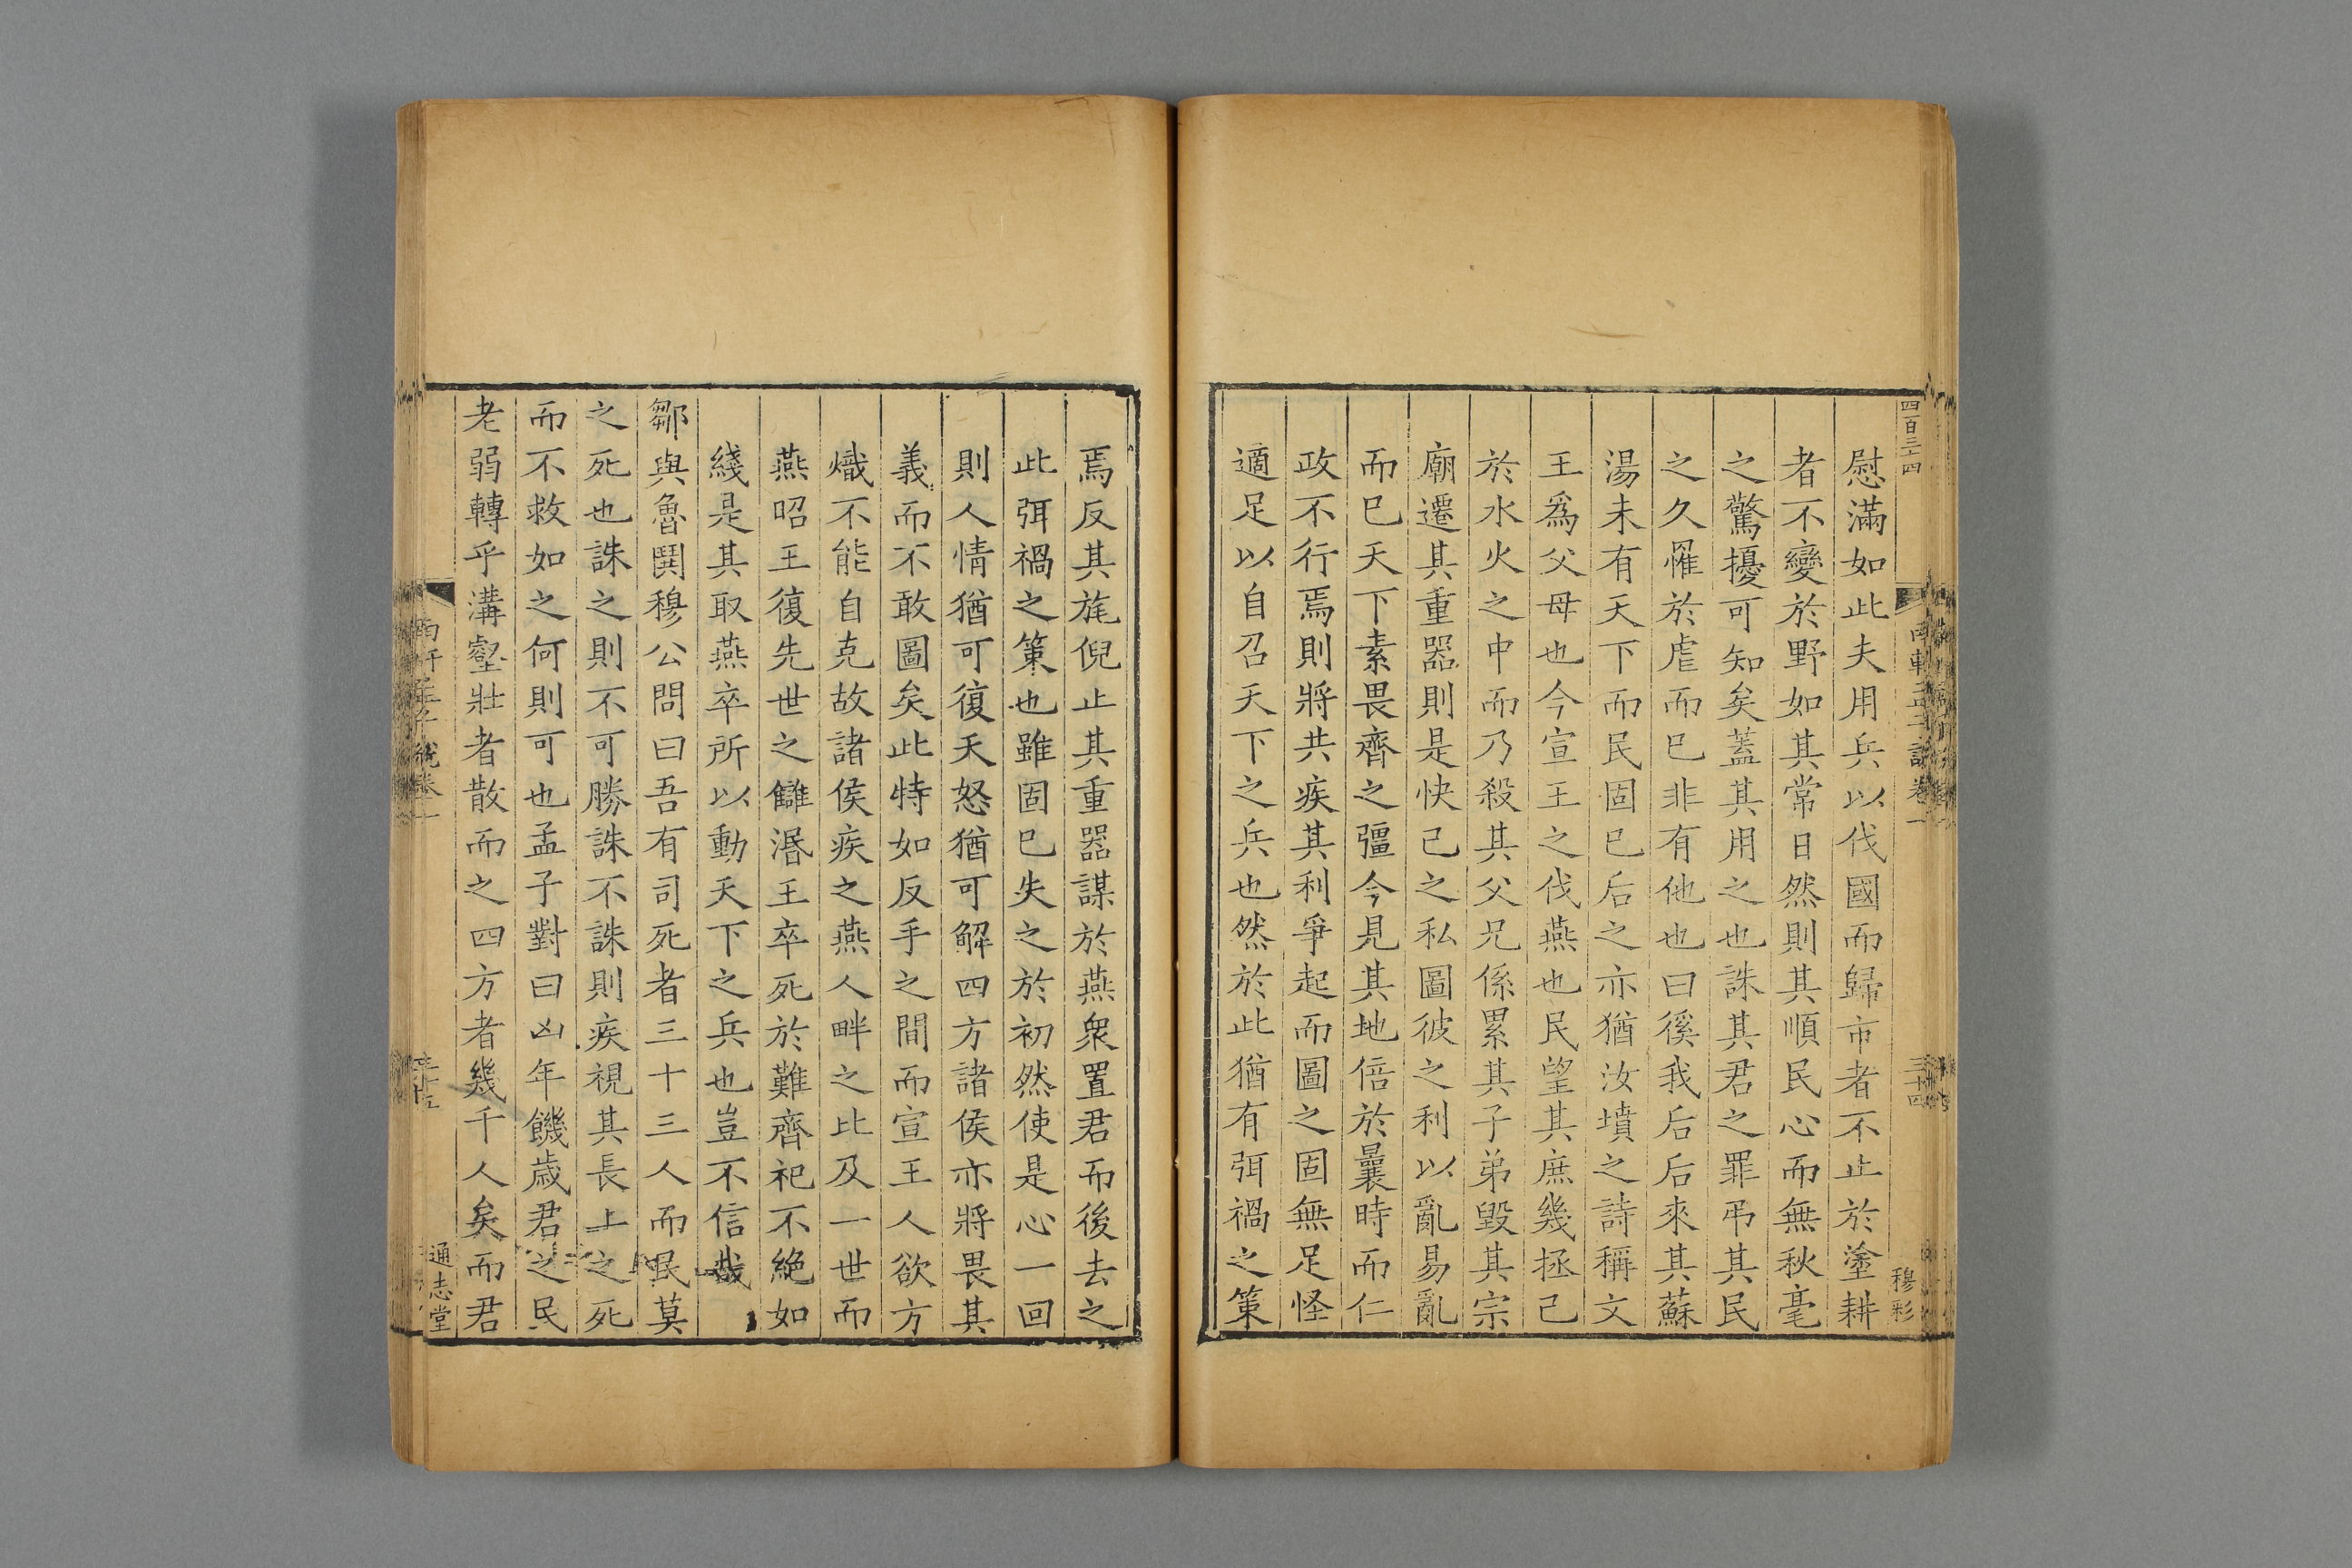 四百三十四
慰滿如此夫用兵以伐國而歸市者不止於塗耕
者不變於野如其常日然則其順民心而無秋毫
之驚擾可知矣蓋其用之也誅其君之罪弔其民
之久罹於虐而巳非有他也曰徯我后后來其蘇
湯未有天下而民固巳后之亦猶汝墳之詩稱文
王爲父母也今宣王之伐燕也民望其庶幾拯己
於水火之中而乃殺其父兄係累其子弟毀其宗
廟遷其重器則是快己之私圖彼之利以亂易亂
而巳天下素畏齊之彊今見其地倍於曩時而仁
政不行焉則將共疾其利爭起而圖之固無足怪
適足以自召天下之兵也然於此猶有弭禍之策
南軒孟子說卷一
三十四
穆彩
焉反其旄倪止其重器謀於燕衆置君而後去之
此弭禍之策也雖固巳失之於初然使是心一回
則人情猶可復天怒猶可解四方諸侯亦將畏其
義而不敢圖矣此特如反手之間而宣王人欲方
熾不能自克故諸侯疾之燕人畔之比及一世而
燕昭王復先世之讎湣王卒死於難齊祀不絕如
綫是其取燕卒所以動天下之兵也豈不信哉
鄒與魯鬨穆公問曰吾有司死者三十三人而民莫
之死也誅之則不可勝誅不誅則疾視其長上之死
而不救如之何則可也孟子對曰凶年饑歲君之民
老弱轉乎溝壑壯者散而之四方者幾千人矣而君
通志堂